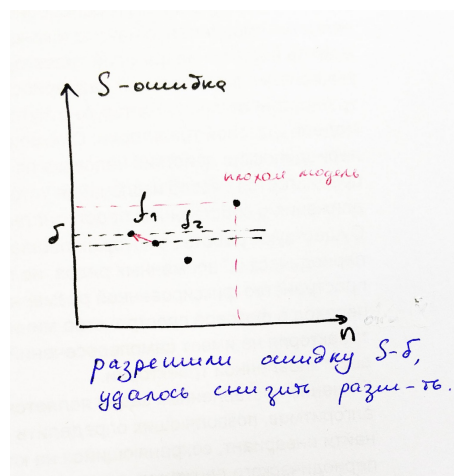 S-ошибка
плохая модель
f1
f2
δ
n
разрешили ошибку S-δ,
удалось снизить разм-ть.